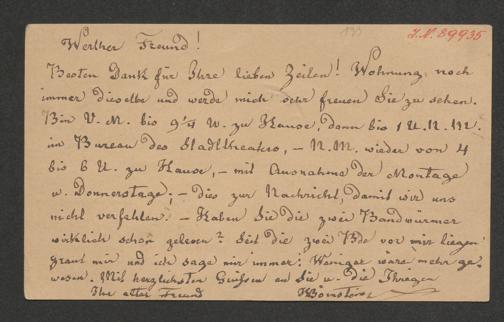 193
I.N. 89935
Werther Freund!
Besten Dank für Ihre lieben Zeilen! Wohnung noch
immer dieselbe und werde mich sehr freuen Sie zu sehen.
Bin V.M. bis 9¼ U. zu Hause, dann bis 1 U. N.M.
im Bureau des Stadttheaters, – N.M. wieder von 4
bis 6 U. zu Hause, – mit Ausnahme der Montage
u. Donnerstage, – dies zur Nachricht, damit wir uns
nicht verfehlen. – Haben Sie die zwei Bandwürmer
wirklich schon gelesen? Seit die zwei Bde vor mir liegen
graut mir und ich sage mir immer: Weniger wäre mehr ge-
wesen. Mit herzlichsten Grüssen an Sie u. die Ihrigen
Ihr alter Freund